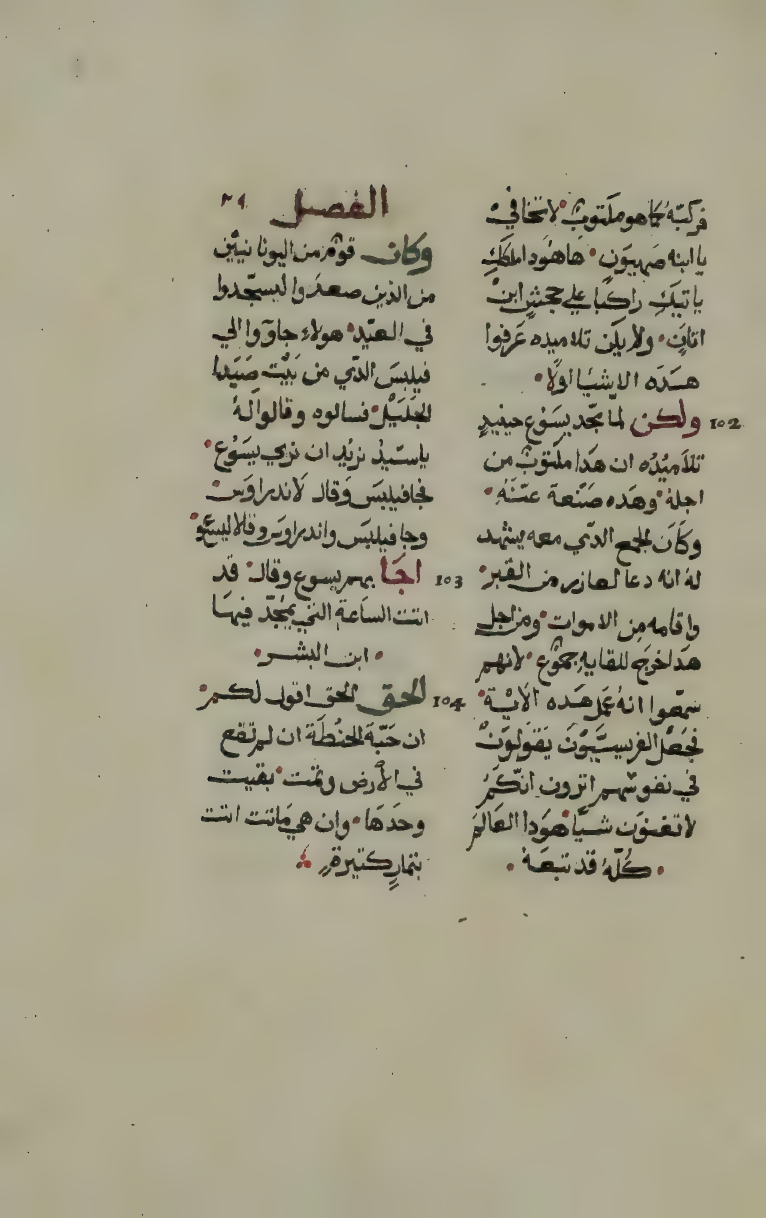 فركبَه كما هو مكتوب لا تخافي
يا ابنه صهيون هاهودا ملكك
ياتيك راكبا علي جحش ابن
اتان ولم يكن تلاميده عرفوا
هده الاشيا اولا
102 ولكن لما تمجد يسوع حينيد
تلاميده ان هدا مكتوب من
اجله وهده صنعة عتنه
وكان الجمع الدي معه يشهد
له انه دعا لعازر من القبر
واقامه من الاموات ومن اجل
هدا خرج للقايه جموع لانهم
سمعوا انه عمل هده الاية
فجعل الفريسييون يقولون
في نفوسهم اترون انكم
لا تغنون شيا هودا العالم
كله قد تبعه
الفصل ٢٩
وكان قوم من اليونانيين
من الذين صعدوا ليسجدوا
في العيد هولاء جاووا الي
فيلبس الدي من بيت صيدا
الجليل فسالوه وقالوا له
ياسيد نريد ان نري يسوع
فجا فيلبس وقال لاندراوس
وجا فيلبس واندراوس وقالا ليسوع
103 اجابهم يسوع وقال قد
اتت الساعة التي يمجد فيها
ابن البشر
104 الحق الحق اقول لكم
ان حبة الحنطة ان لم تقع
في الارض وتمت بقيت
وحدها وان هي ماتت اتت
بثمار كتيرة